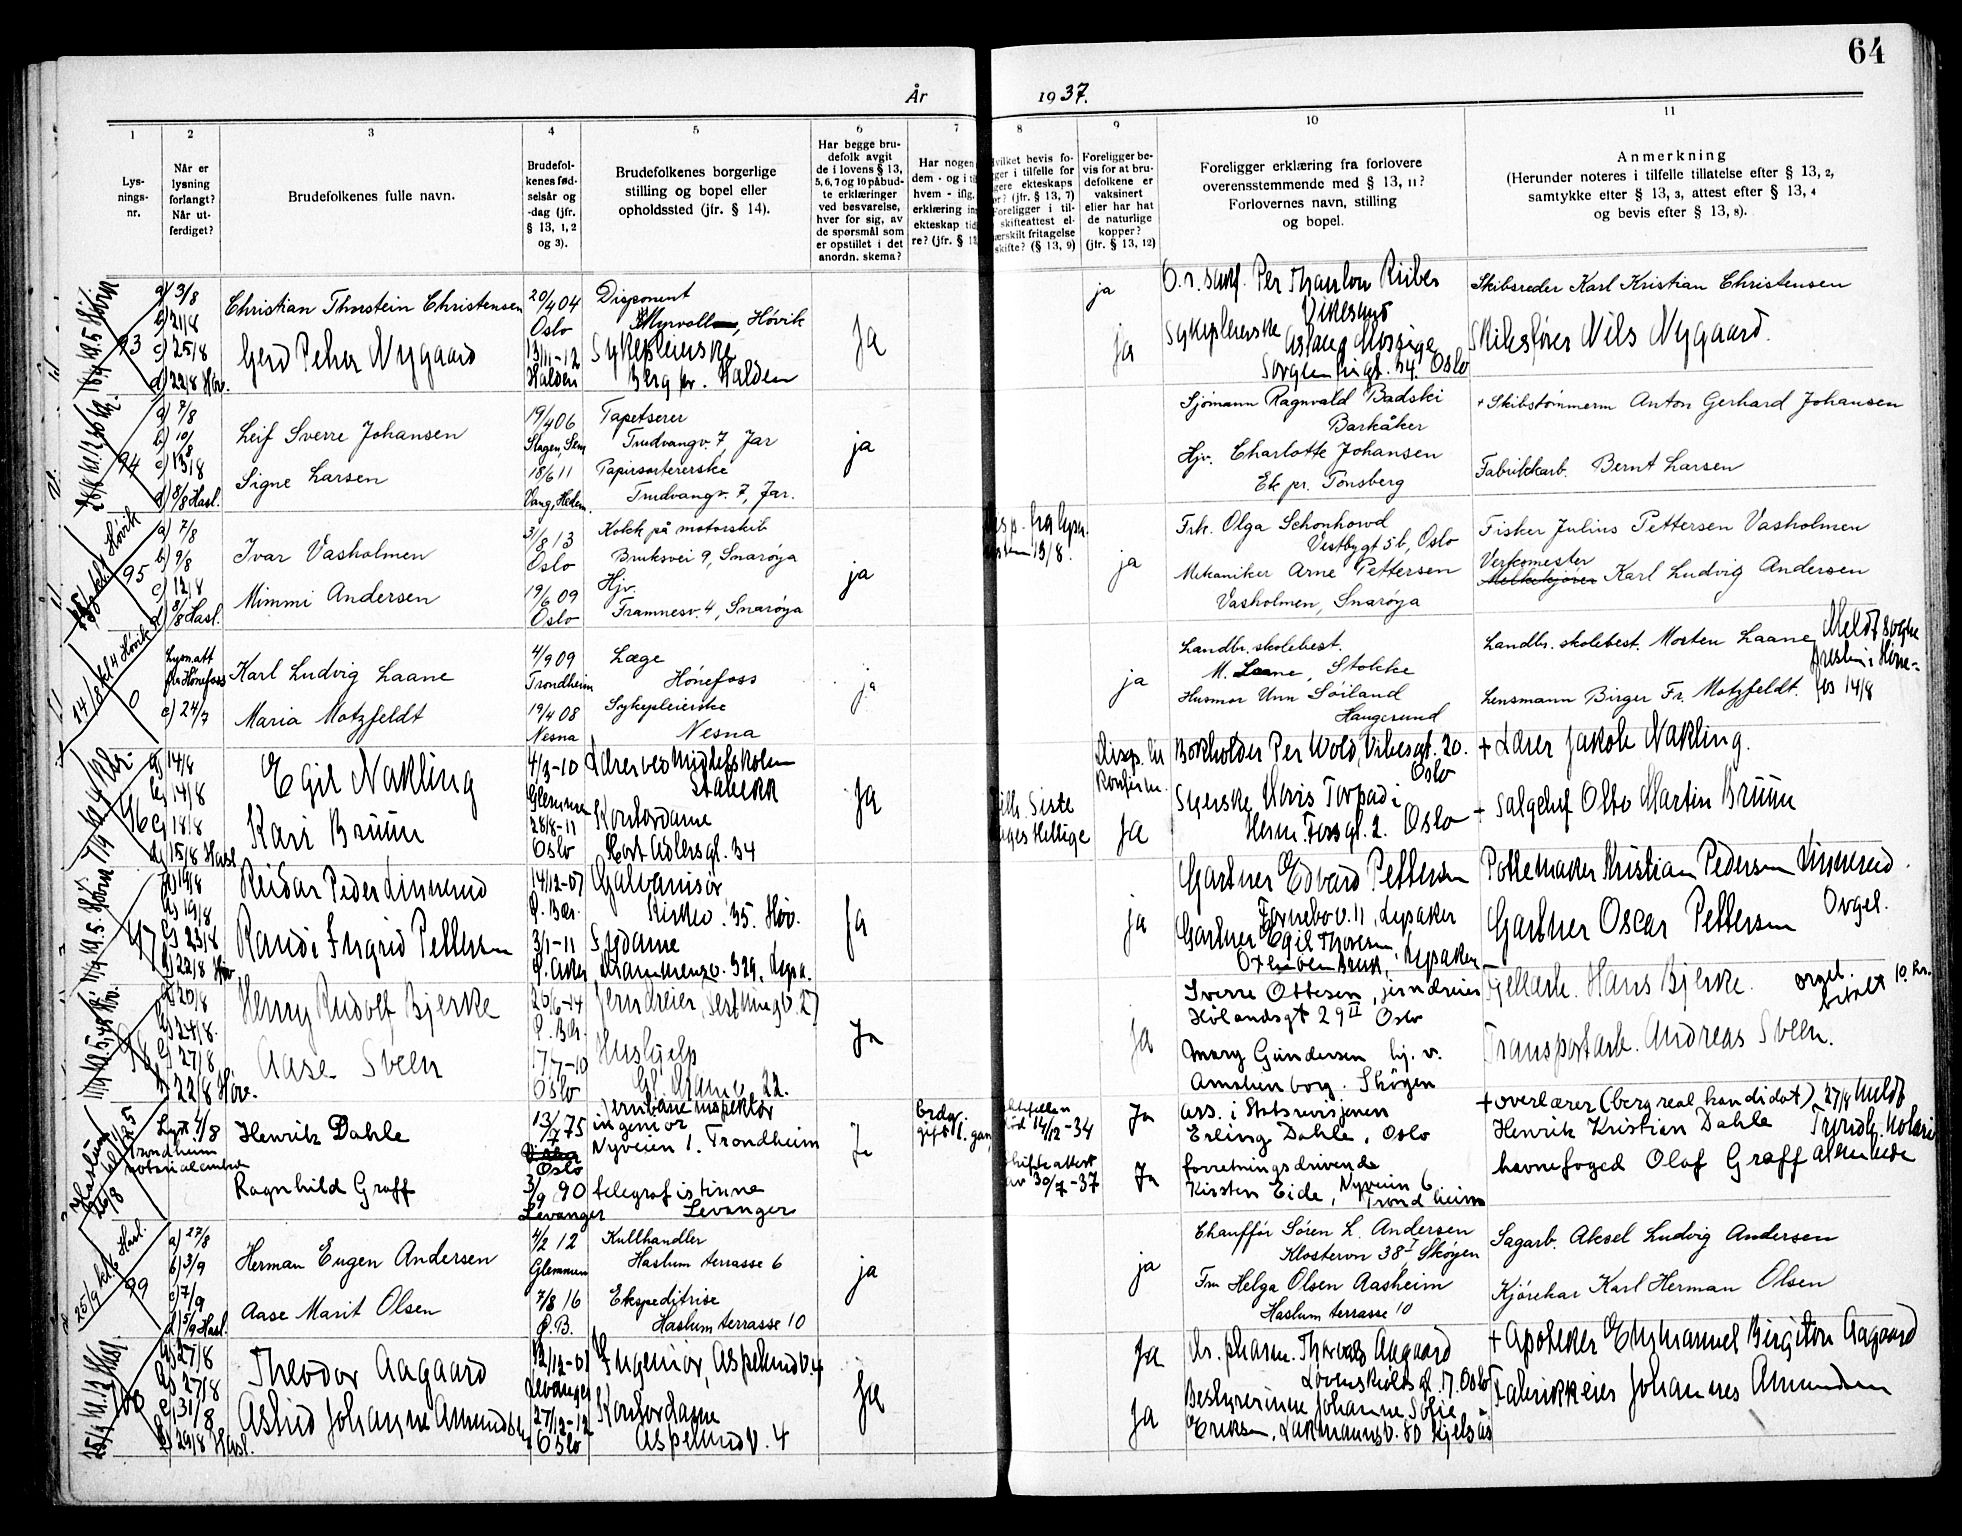 64
År 1937.
1 2 3 4 5 6 7 8 9 10 11
Lysnings-nr.
Når er lysning forlangt? Når ut-ferdiget?
Brudefolkenes fulle navn.
Brudefol-kenes fød-selsår og -dag (jfr. § 13, 1, 2 og 3).
Brudefolkenes borgerlige stilling og bopel eller opholdssted (jfr. § 14).
Har begge bru-defolk avgit de i lovens § 13, 5, 6, 7 og 10 påbud-te erklæringer ved besvarelse, hver for sig, av de spørsmål som er opstillet i det anordn. skema?
Har nogen dem - og i til hvem - iflg. erklæring in ekteskap tid re? (jfr. § 13
vilket bevis fo- ger i tilfelle for gere ekteskaps or? (jfr. § 13, 7) Foreligger i til- skifteattest el- særskilt fritagelse skifte? (§ 13, 9)
Foreligger be-vis for at bru-defolkene er vaksinert eller har hat de naturlige kopper? (jfr. § 13, 12)
Foreligger erklæring fra forlovere overensstemmende med § 13, 11? Forlovernes navn, stilling og bopel.
Anmerkning
(Herunder noteres i tilfelle tillatelse efter § 13, 2, samtykke etter § 13, 3, attest efter § 13, 4 og bevis efter § 13, 8).
93
a) 3/8
b) 21/8
c) 25/8
d) 22/8 Høv.
Christian Thorstein Christensen
20/4 04
Oslo
Disponent
Myrvoll, Høvik
Gerd Peha Nygaard
13/11-12
Halden
Sykepleierske
Berg pr. Halden
Ja
ja
ja
O.r. sakf. Per Thaulow Riiber
Vikesund
Sykepleierske Aslaug Mossige
Sorgenfrigt. 34. Oslo
Skibsreder Karl Kristian Christensen
Skibsfører Nils Nygaard.
94
a) 7/8
b) 10/8
c) 13/8
d) 8/8 Hasl.
Leif Sverre Johansen
19/4 06
Slagen, Sem
Tapetserer
Trudvangv. 7 Jar
Signe Larsen
18/6 11
Vang, Hedem.
Papirsortererske
Trudvangv. 7, Jar.
ja
Sjømann Ragnvald Badski
Barkåker
Hjv. Charlotte Johansen
Ek pr. Tønsberg
+ Skibstømmerm Anton Gerhard Johansen
Fabrikkarb. Bernt Larsen
95
a) 7/8
b) 9/8
c) 12/8
d) 8/8 Hasl.
Ivar Vasholmen
3/8 13
Oslo
Kokk på motorskib
Bruksvei 9, Snarøya
Mimmi Andersen
19/6 09
Oslo
Hjv.
Framnesv. 4, Snarøya
ja
13/8.
ja
Frk. Olga Schonhowd
Vestbygt 5 b, Oslo
Mekaniker Arne Pettersen
Vasholmen, Snarøya
Fisker Julius Pettersen Vasholmen
Verksmester
Melkekjører Karl Ludvig Andersen
14/8 kl 4 Høvik
0
Lysn.att
fra Hønefoss
c) 24/7
Karl Ludvig Laane
4/9 09
Trondheim
Læge
Hønefoss
Maria Motzfeldt
19/4 08
Nesna
Sykepleierske
Nesna
ja
ja
Landbr. skolebest.
M. Laane, Stokke
Husmor Unn Søiland
Haugesund
Landbr. skolebest. Morten Laane
Lensmann Birger Fr. Motzfeldt.
Meldt sogne
presten i Høne-
fos 14/8
96
a) 14/8
b) 14/8
c) 18/8
d) 15/8 Hasl
Egil Nakling
4/3-10
Glemmen
Lærer ved Middelskolen
Stabekk
Kari Bruun
28/8-11
Oslo
Kontordame
Kort Adlersgt. 34
Ja
Siste
dages Hellige
Ja
Bokholder Per Wold, Vibesgt. 20.
Oslo
Syerske Maris Torpadi
Herm. Fossgt. 2. Oslo
+ Lærer Jakob Nakling.
+ Salgchef Otto Martin Bruun
97
a) 19/8
b) 19/8
c) 23/8
d) 22/8 Høv
Reidar Peder Linnerud
14/12-07
Ø. Bær.
Galvanisør
Kirkev. 35. Høv.
Randi Ingrid Pettersen
3/1-11
Ø. Aker
Sydame
Drammensv. 329, Lysa.
Ja
ja
Gartner Edvard Pettersen
Fornebov. 11, Lysaker
Gartner Egil Thoresen
Oxenøen Bruk, Lysaker
Pottemaker Kristian Pedersen Linnerud.
Gartner Oscar Pettersen
Orgel.
98
a) 20/8
b) 24/8.
c) 27/8
d) 22/8 Høv.
Henry Rudolf Bjerke
26/6-14
Ø. Bær.
Jerndreier, Jerstningv. 27
Aase Sveen
17/7-10
Oslo
Hushjelp
Gl. Dram.v. 22.
Ja
Ja
Sverre Ottesen, jerndreier
Hølandsgt 29 II Oslo
Mary Gundersen hj. v.
Amalienborg. Skøgen
Hans Bjerke.
Transportarb. Andreas Sveen.
orgel.
betalt 10 kr.
26/8
Lyst. 4/8
Trondheim
notarialembete
Henrik Dahle
13/7 75
Oslo
Jernbaneinspektør
ingeniør
Nyveien 1. Trondheim
Ragnhild Graff
3/9 90
Levanger
telegrafistinne
Levanger
Ja
gift 1. gan
14/12-34
Skifteattest
30/7-37
Ja
Ja
ass. i Statsrevisjonen
Erling Dahle, Oslo
forretningsdrivende
Kirsten Eide, Nyveien 6
Trondheim
+ overlærer (berg real kandidat)
Henrik Kristian Dahle
havnefoged Olaf Graff
27/8 Meldt
Trondh. Notari
alembede
25/9 kl. 6 Hasl.
99
a) 27/8
b) 3/9
c) 7/9
d) 5/9 Hasl.
Herman Eugen Andersen
4/2 12
Glemmen
Kullhandler
Haslum terrasse 6
Aase Marit Olsen
7/8 16
Ø. B.
Ekspeditrise
Haslum terrasse 10
ja
ja
Chauffør Søren L. Andersen
Klosterøn 38 I Skøyen
Fru Helga Olsen Aasheim
Haslum terrasse 10
Sagarb. Aksel Ludvig Andersen
Kjørekar Karl Herman Olsen
100
a) 27/8
b) 27/8
c) 31/8
d) 29/8 Hasl.
Theodor Aagaard
12/12-01
Levanger
Ingeniør, Aspelundv. 4
Astrid Johanne Amundsen
27/12-12
Oslo
Kontordame
Aspelundv. 4
Ja
Ja
Ja
Dr. pharm. Thorvald Aagaard
Løvenskioldsgt. 17. Oslo
Bestyrerinne Johanne Solie
Eriksen, Lakmannsv. 80 Kjelsås
+ Apoteker Emmanuel Birgiton Aagaard
Fabrikkeier Johannes Amundsen